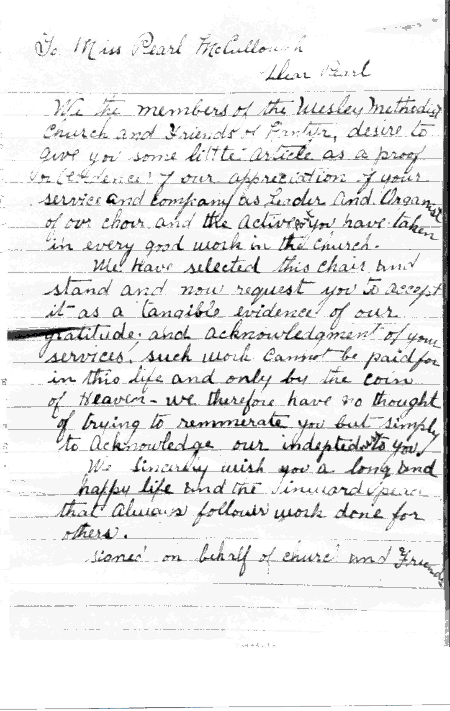 To Miss Pearl McCullough
Dear Pearl
We the members of the Wesley Methodist
Church and Friends of Cantyr, desire to
give you some little article as a proof
or (evidence) of our appreciation of your
service and company as Leader and Organist
of our choir and the Active part you have taken
in every good work in the church.
We Have selected this chair and
stand and now request you to accept
it as a tangible evidence of our
gratitude; and acknowledgment of your
services, such work cannot be paid for
in this life and only by the coin
of Heaven - we therefore have no thought
of trying to remmerate you but simply
to Acknowledge our indeptidness to you
We Sincerely wish you a long and
happy life and the inward peace
that Always follows work done for
others.
signed on behalf of church and Friends